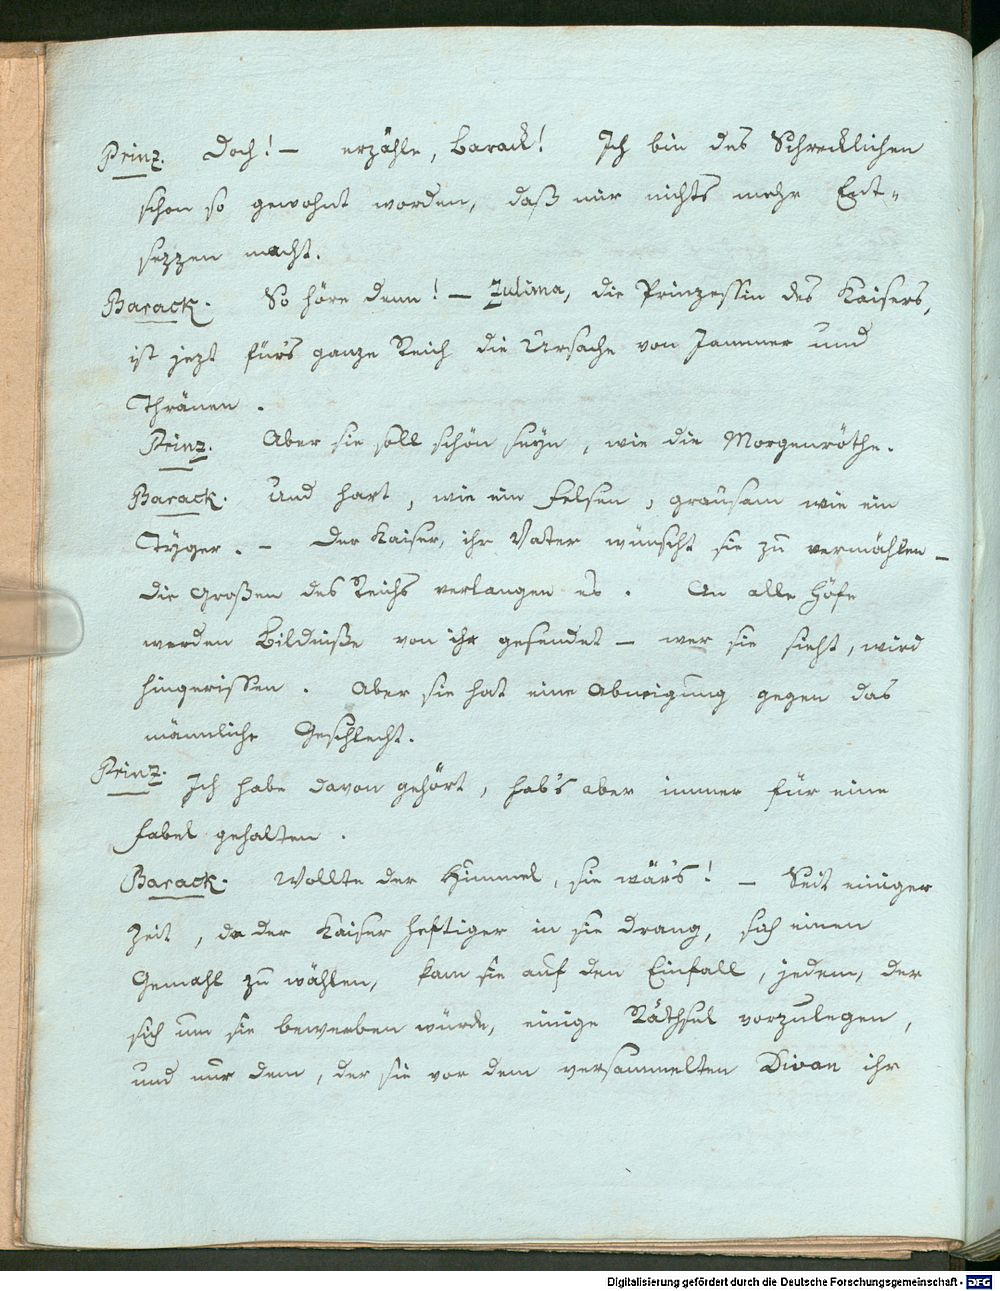 Prinz. Doch! — erzähle, Barack! Ich bin des Schrecklichen
schon so gewohnt worden, daß mir nichts mehr Ent-
sezzen macht.
Barack. So höre denn! — Zulima, die Prinzessin des Kaisers,
ist jezt für's ganze Reich die Ursache von Jammer und
Thränen.
Prinz. Aber sie soll schön seyn, wie die Morgenröthe.
Barack. Und hart, wie ein Felsen, grausam wie ein
Tyger. — Der Kaiser, ihr Vater wünscht sie zu vermählen —
die Großen des Reichs verlangen es. An alle Höfe
werden Bildniße von ihr gesendet — wer sie sieht, wird
hingerissen. Aber sie hat eine Abneigung gegen das
männliche Geschlecht.
Prinz. Ich habe davon gehört, hab's aber immer für eine
Fabel gehalten.
Barack. Wollte der Himmel, sie wär's! — Seit einiger
Zeit, da der Kaiser heftiger in sie drang, sich einen
Gemahl zu wählen, kam sie auf den Einfall, jedem, der
sich um sie bewerben würde, einige Räthsel vorzulegen,
und nur dem, der sie vor dem versammelten Divan ihr
Digitalisierung gefördert durch die Deutsche Forschungsgemeinschaft - DFG